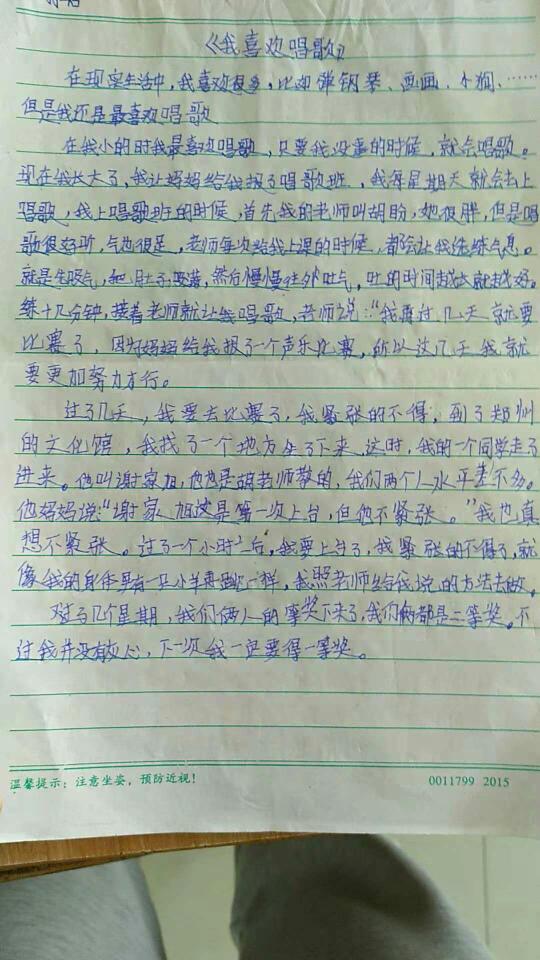 《我喜欢唱歌》
在现实生活中，我喜欢很多，比如弹钢琴、画画、小狗……
但是我还是最喜欢唱歌
在我小的时我最喜欢唱歌，只要我没事的时候，就会唱歌。
现在我长大了，我让妈妈给我报了唱歌班，我每星期天就会去上
唱歌，我上唱歌班的时候，首先我的老师叫胡盼，她很胖，但是唱
歌很好听，气也很足，老师每次给我上课的时候，都会让我先练气息。
就是先吸气，把肚子吸满，然后慢慢往外吐气，吐的时间越长就越好。
练十几分钟，接着老师就让我唱歌，老师说：“我再过几天就要
比赛了，因为妈妈给我报了一个声乐比赛，所以这几天我就
要更加努力才行。
过了几天，我要去比赛了，我紧张的不得，到了郑州
的文化馆，我找了一个地方坐了下来，这时，我的一个同学走了
进来。他叫谢家旭，他也是胡老师带的，我们两个人水平差不多。
他妈妈说：“谢家旭这是第一次上台，但他不紧张。”我也真
想不紧张。过了一个小时之后，我要上台了，我紧张的不得了，就
像我的身体里有一只小羊乱跳一样，我照老师给我说的方法去做。
过了几个星期，我们俩人的奖下来了，我们俩都是二等奖。不
过我并没有灰心，下一次我一定要得一等奖。
温馨提示：注意坐姿，预防近视！
0011799 2015